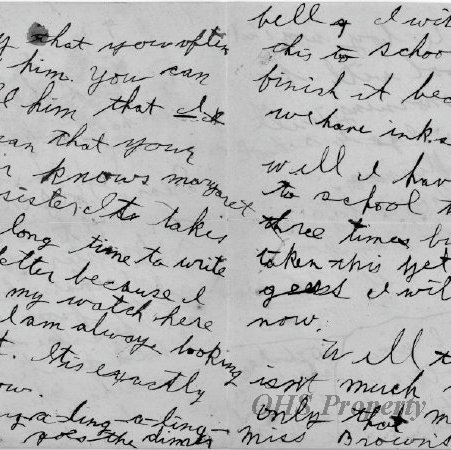 that you often
him. You can
him that I.
an that your
knows margaret
sister. Its takis
long time to write
etter because I
my watch here
I am always looking
t. It is exactly
ow.
ng-a-ling-a-ling-
goes the dinner
bell & I wil
this to schoo
finish it bec
we have ink a
will I hav
to school t
three times bu
taken this yet
gess I wil
now.
Well t
isnt much
only that m
Miss Browns
QHS Property